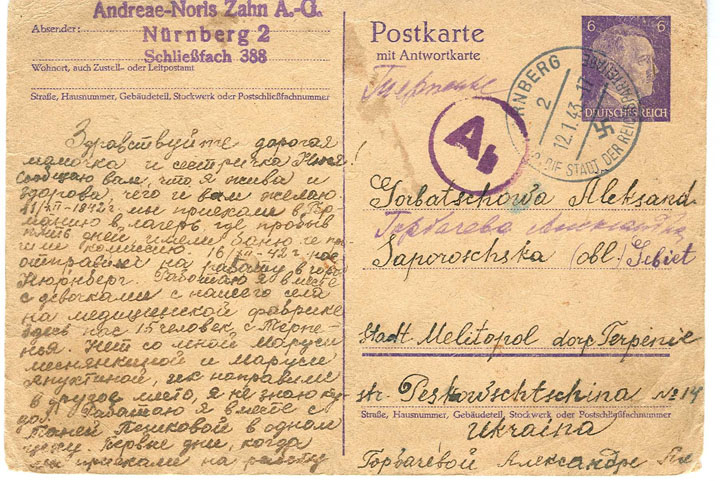 Andreae-Noris Zahn A.-G.
Absender:
Nürnberg 2
Schließfach 388
Wohnort, auch Zustell- oder Leitpostamt
Straße, Hausnummer, Gebäudeteil, Stockwerk oder Postschließfachnummer
Здравствуйте дорогая
мамочка и сестричка
Сообщаю вам, что я жива и
здорова чего и вам желаю.
1942 г мы приехали в Гер
манию в лагерь где пробыв
пять дней имели баню и про
отправили на 16 42 г
работу в город
Нюрнберг. Работаю я вместе
с девочками с нашего села
на медицинской фабрике
здесь нас 15 человек, с Терпе-
нья. Нет со мной Маруси
и Маруси
их направили
в другое место, я не знаю ку
да. Работаю я вместе с
Таней Пешковой в одном
цеху. Первые дни, когда
мы приехали на работу
Postkarte
mit Antwortkarte
Терпение
6 6
DEUTSCHES REICH
NÜRNBERG
2
12.1.43.-17
DIE STADT DER REICHSPARTEITAGE
Ab
Gorbatschowa Aleksand
Горбачева Александра
Saporoschska (obl.) Gebiet
Stadt Melitopol dorp Terpenie
str. Peskowschtschina № 14
Straße, Hausnummer, Gebäudeteil, Stockwerk oder Postschließfachnummer
Ukraina
Горбачёвой Александре